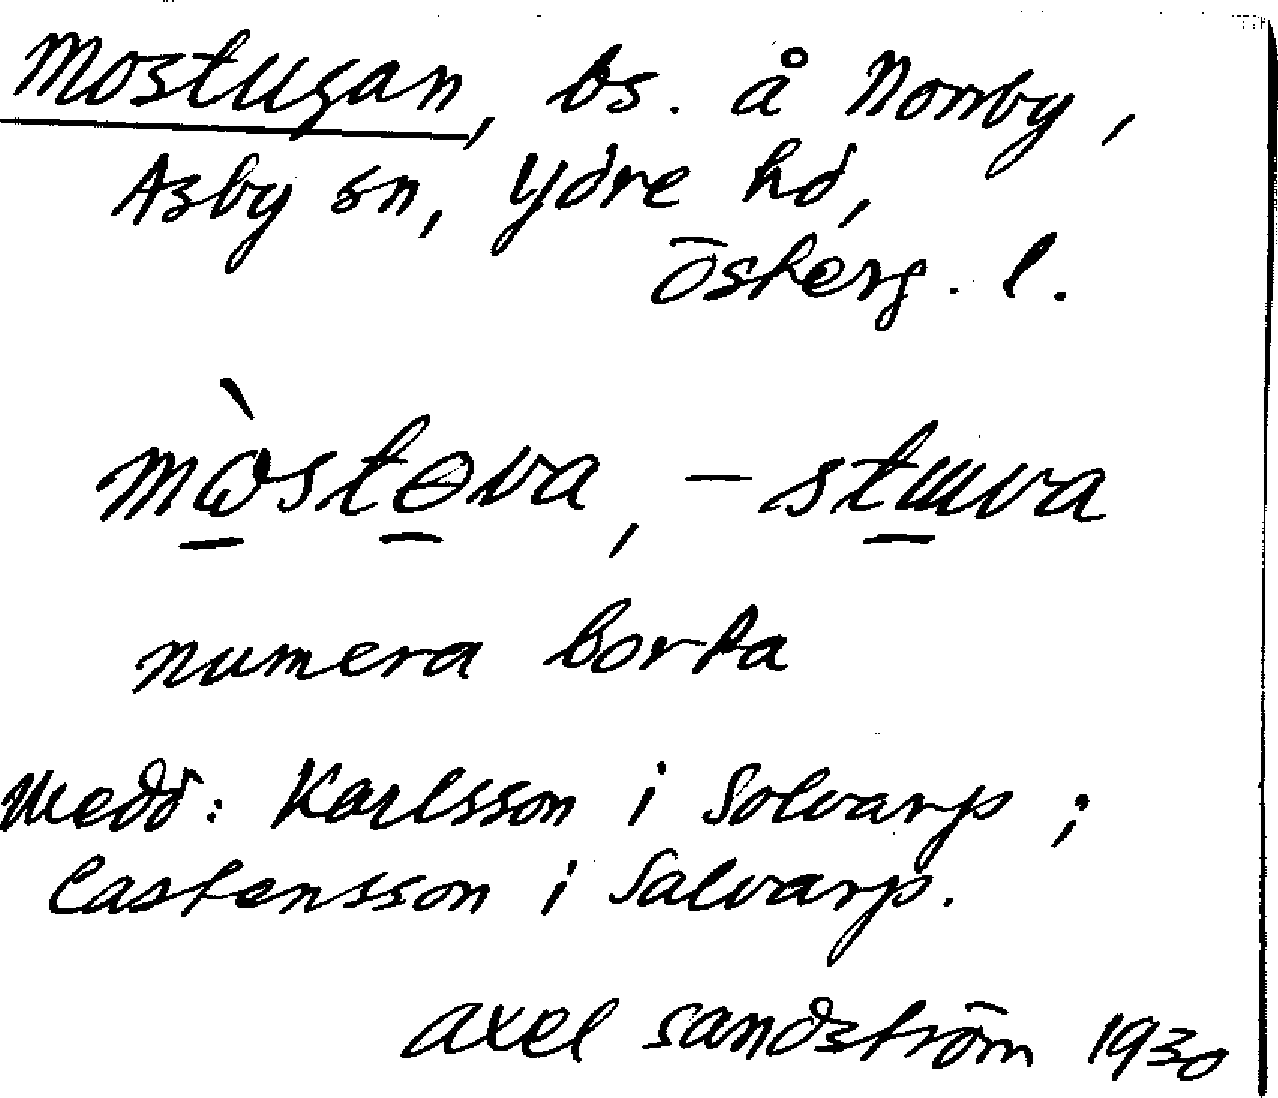 Mostugan, bs. å Norrby,
Asby sn, Ydre hd,
Österg. l.
mòstɵva, -stɯva
numera borta
Medd: Karlsson i Solvarp;
Castensson i Salvarp.
Axel Sandström 1930